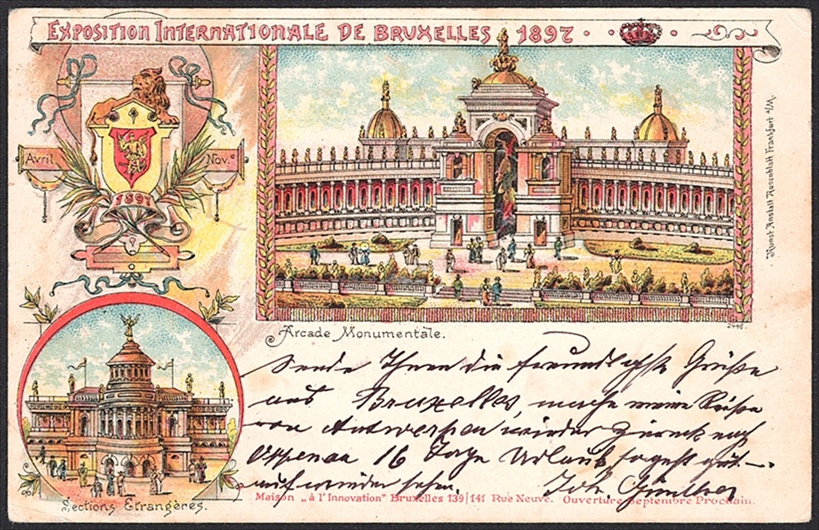 EXPOSITION INTERNATIONALE DE BRUXELLES 1897
Avril
Nov.e
1897
Kunst Anstalt Rosenblatt Frankfurt a/M.
2446.
Arcade Monumentale.
Sende Ihnen die freundlichste Grüße
aus Bruxelles, mache meine Reise
von Antwerpen wieder zurück nach
16 Tage Urlaub
auf wieder sehen. Joh.
Sections Etrangères.
Maison „à l'Innovation" Bruxelles 139|141 Rue Neuve. Ouverture Septembre Prochain.